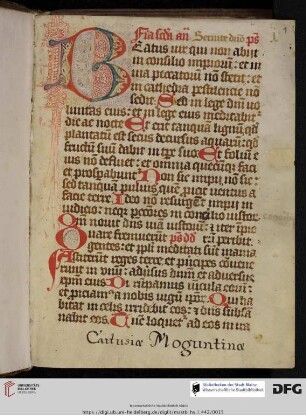 Feria scda an̄ Seruite dn̄o ps
Eatus uir qui non abijt
in consilio impiorū: et in
uia peccatorū nō stetit: et
in cathedra pestilencie nō
sedit Sed in lege dn̄i uo
luntas eius: et in lege eius meditabit̉
die ac nocte Et erit tanquā lignū qd̓
plantatū est secus decursus aquarū: qd̓
fructū suū dabit in tpe suo Et foliū e
ius nō defluet: et omnia quecūq̨ faci
et prosperabunt̉ Non sic impij nō sic:
sed tanquā puluis quē proicit uentus a
facie terre Ideo nō resurgūt impij in
iudicio: neq̨ pctores in consilio iustor̨
Qm̄ nouit dn̄s uiā iustorū: et iter ipio
Quare fremuerūt ps dd rū peribit.
gentes: et ppl̓i meditati sūt inania
Astiterūt reges terre et pricipes conue
nerūt in vnū: adūsus dn̄m et aduersus
xpm̄ eius Dirūpamus uincula eorū:
et proiciam̉ a nobis iugū ipor̨ Qui ha
bitat in celis irridebit eos: et dn̄s subsā
nabit eos Tūc loquet̉ ad eos in ira
Cartusiæ Moguntinæ
UNIVERSITÄTS-
BIBLIOTHEK
HEIDELBERG
Bibliotheken der Stadt Mainz
Wissenschaftliche Stadtbibliothek
Wissenschaftliche Stadtbibliothek Mainz
https://digi.ub.uni-heidelberg.de/diglit/mainz_hs_I_442/0011